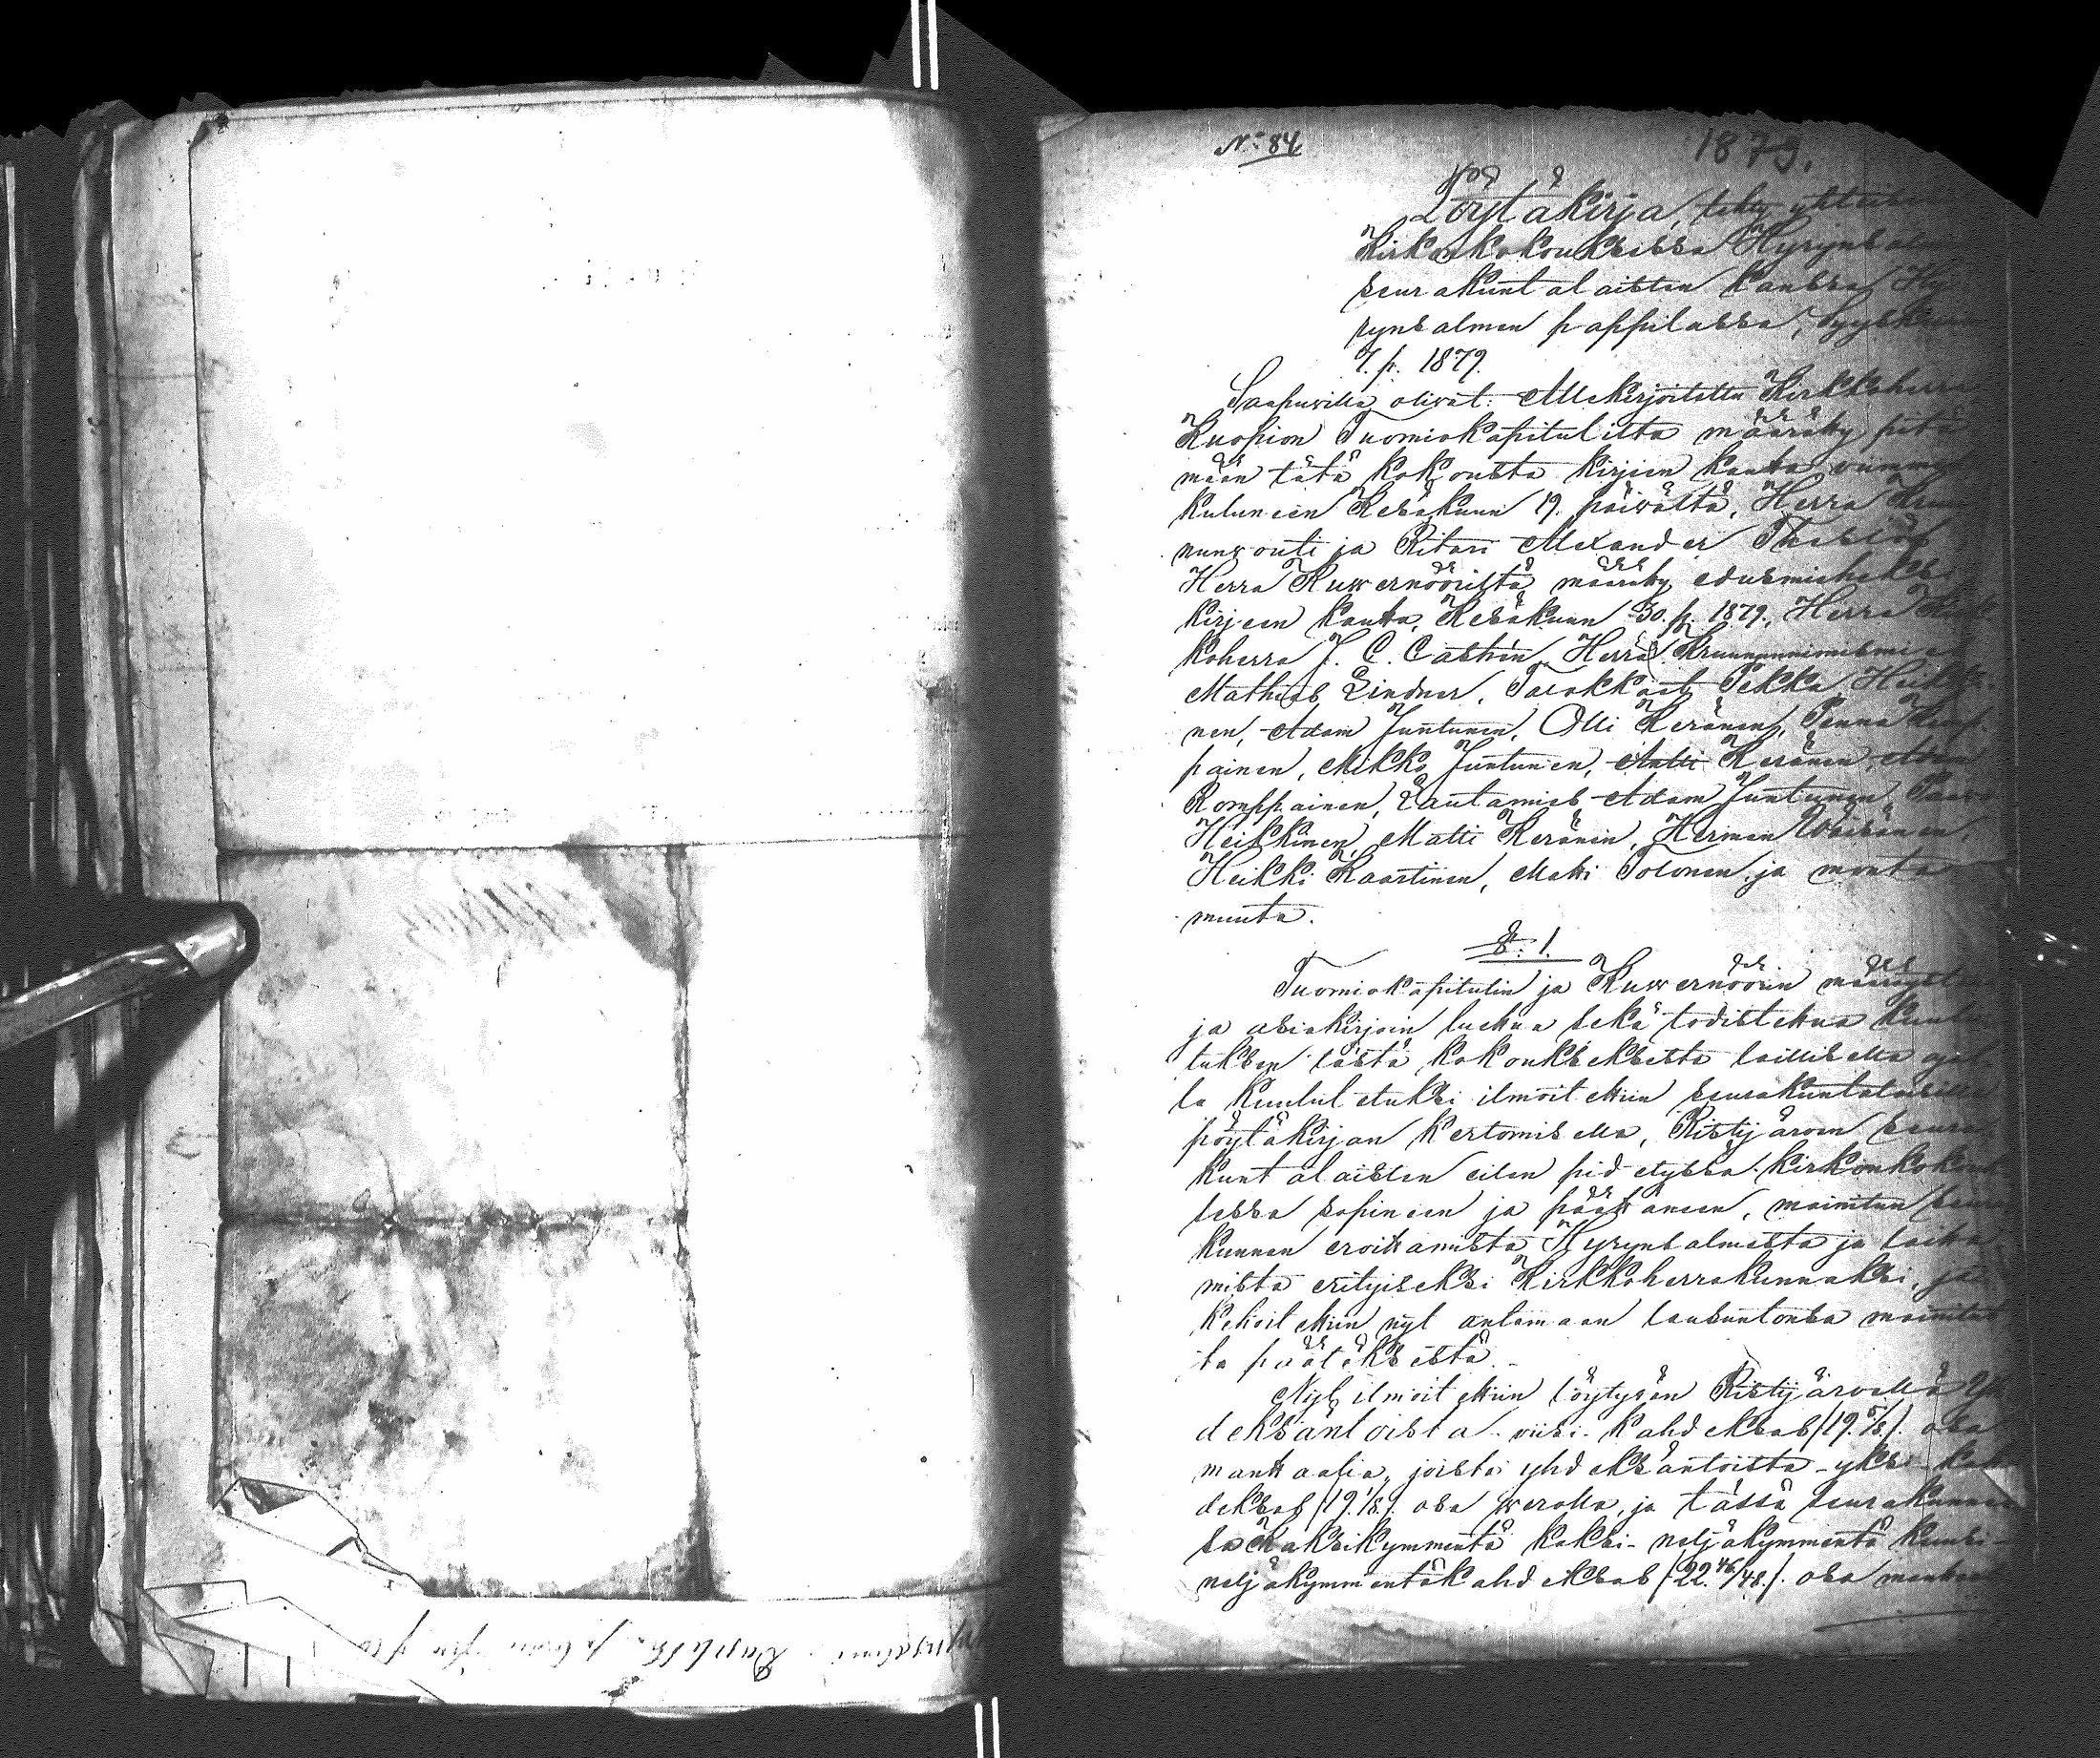 No 84
1879.
Pöytäkirja, tehty yhteisessä
Kirkonkokouksessa Hyrynsalmen
seurakuntalaisten kanssa Hy-
rynsalmen pappilassa, Syyskuun
7. p. 1879.
Saapuvilla olivat: Allekirjoitettu Kirkkoherra
Kuopion Tuomiokapitulilta määrätty pitä-
mään tätä kokousta kirjeen kautta viimmeksi
kuluneen Kesäkuun 19. päivältä, Herra Kruu-
nunvouti ja Ritari Alexander
Herra Kuvernööriltä määrätty edusmieheksi
kirjeen kautta, Kesäkuun 30. p. 1879., Herra Kirk-
koherra J. C. Castrén, Herra Kruununnimismies
Mathias Lindner, Talokkaat Pekka Heikki-
nen, Adam Juntunen, Olli Keränen, Penna Komp-
painen, Mikko Juntunen, Antti Keränen, Adam
Romppainen, Lautamies Adam Juntunen, Paavo
Heikkinen, Matti Keränen, Herman Väisänen,
Heikki Kaartinen, Matti Tolonen ja monta
muuta.
§. 1.
Tuomiokapitulin ja Kuvernöörin määräykset
ja asiakirjain luettua sekä todistettua kuulu-
tuksen tästä kokouksesta laillisella ajal-
la kuulutetuksi ilmoitettiin seurakuntalaisille
pöytäkirjan kertomisella, Ristijärven seura-
kuntalaisten eilen pidetyssä kirkonkokouk-
sessa sopineen ja päättäneen, mainitun seura-
kunnan eroittamista Hyrynsalmesta ja laitta-
mista erityiseksi Kirkkoherrakunnaksi, ja
kehoitettiin nyt antamaan lausuntonsa mainitus-
ta päätöksestä.
Nyt ilmoitettiin löytyvän Ristijärvellä Yh-
deksäntoista-viisi-kahdeksas/19.5/8/. osa
manttaalia, joista yhdeksäntoista-yksi-kah-
deksas/19.1/8/. osa verolla, ja tässä seurakunnas-
sa Kaksikymmentä kaksi-neljäkymmentä kuusi-
neljäkymmentäkahdeksas/22.46/48./. osa manttaa